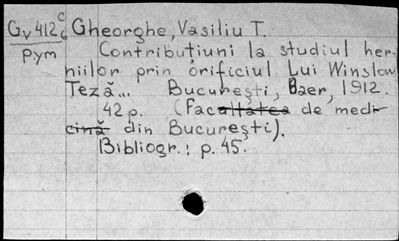 Gv412c6 Gheorghe, Vasiliu T.
рум Contribuțiuni la studiul her-
niilor prin orificiul Lui Winslow
Teză... București, Baer, 1912.
42 p. (Facultatea de medi-
cină din București).
Bibliogr.: p. 45.